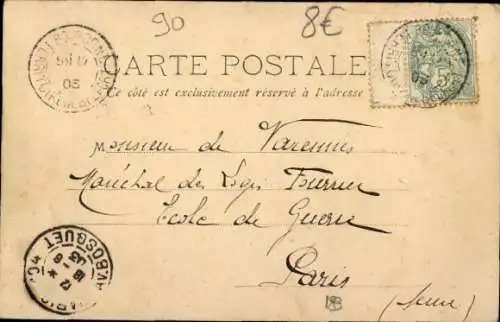 90
8€
CARTE POSTALE
Ce côté est exclusivement réservé à l'adresse
Monsieur de Varennes
Maréchal des Logis Fourrier
Ecole de Guerre
Paris
(Seine)
BOSQUET
03
5